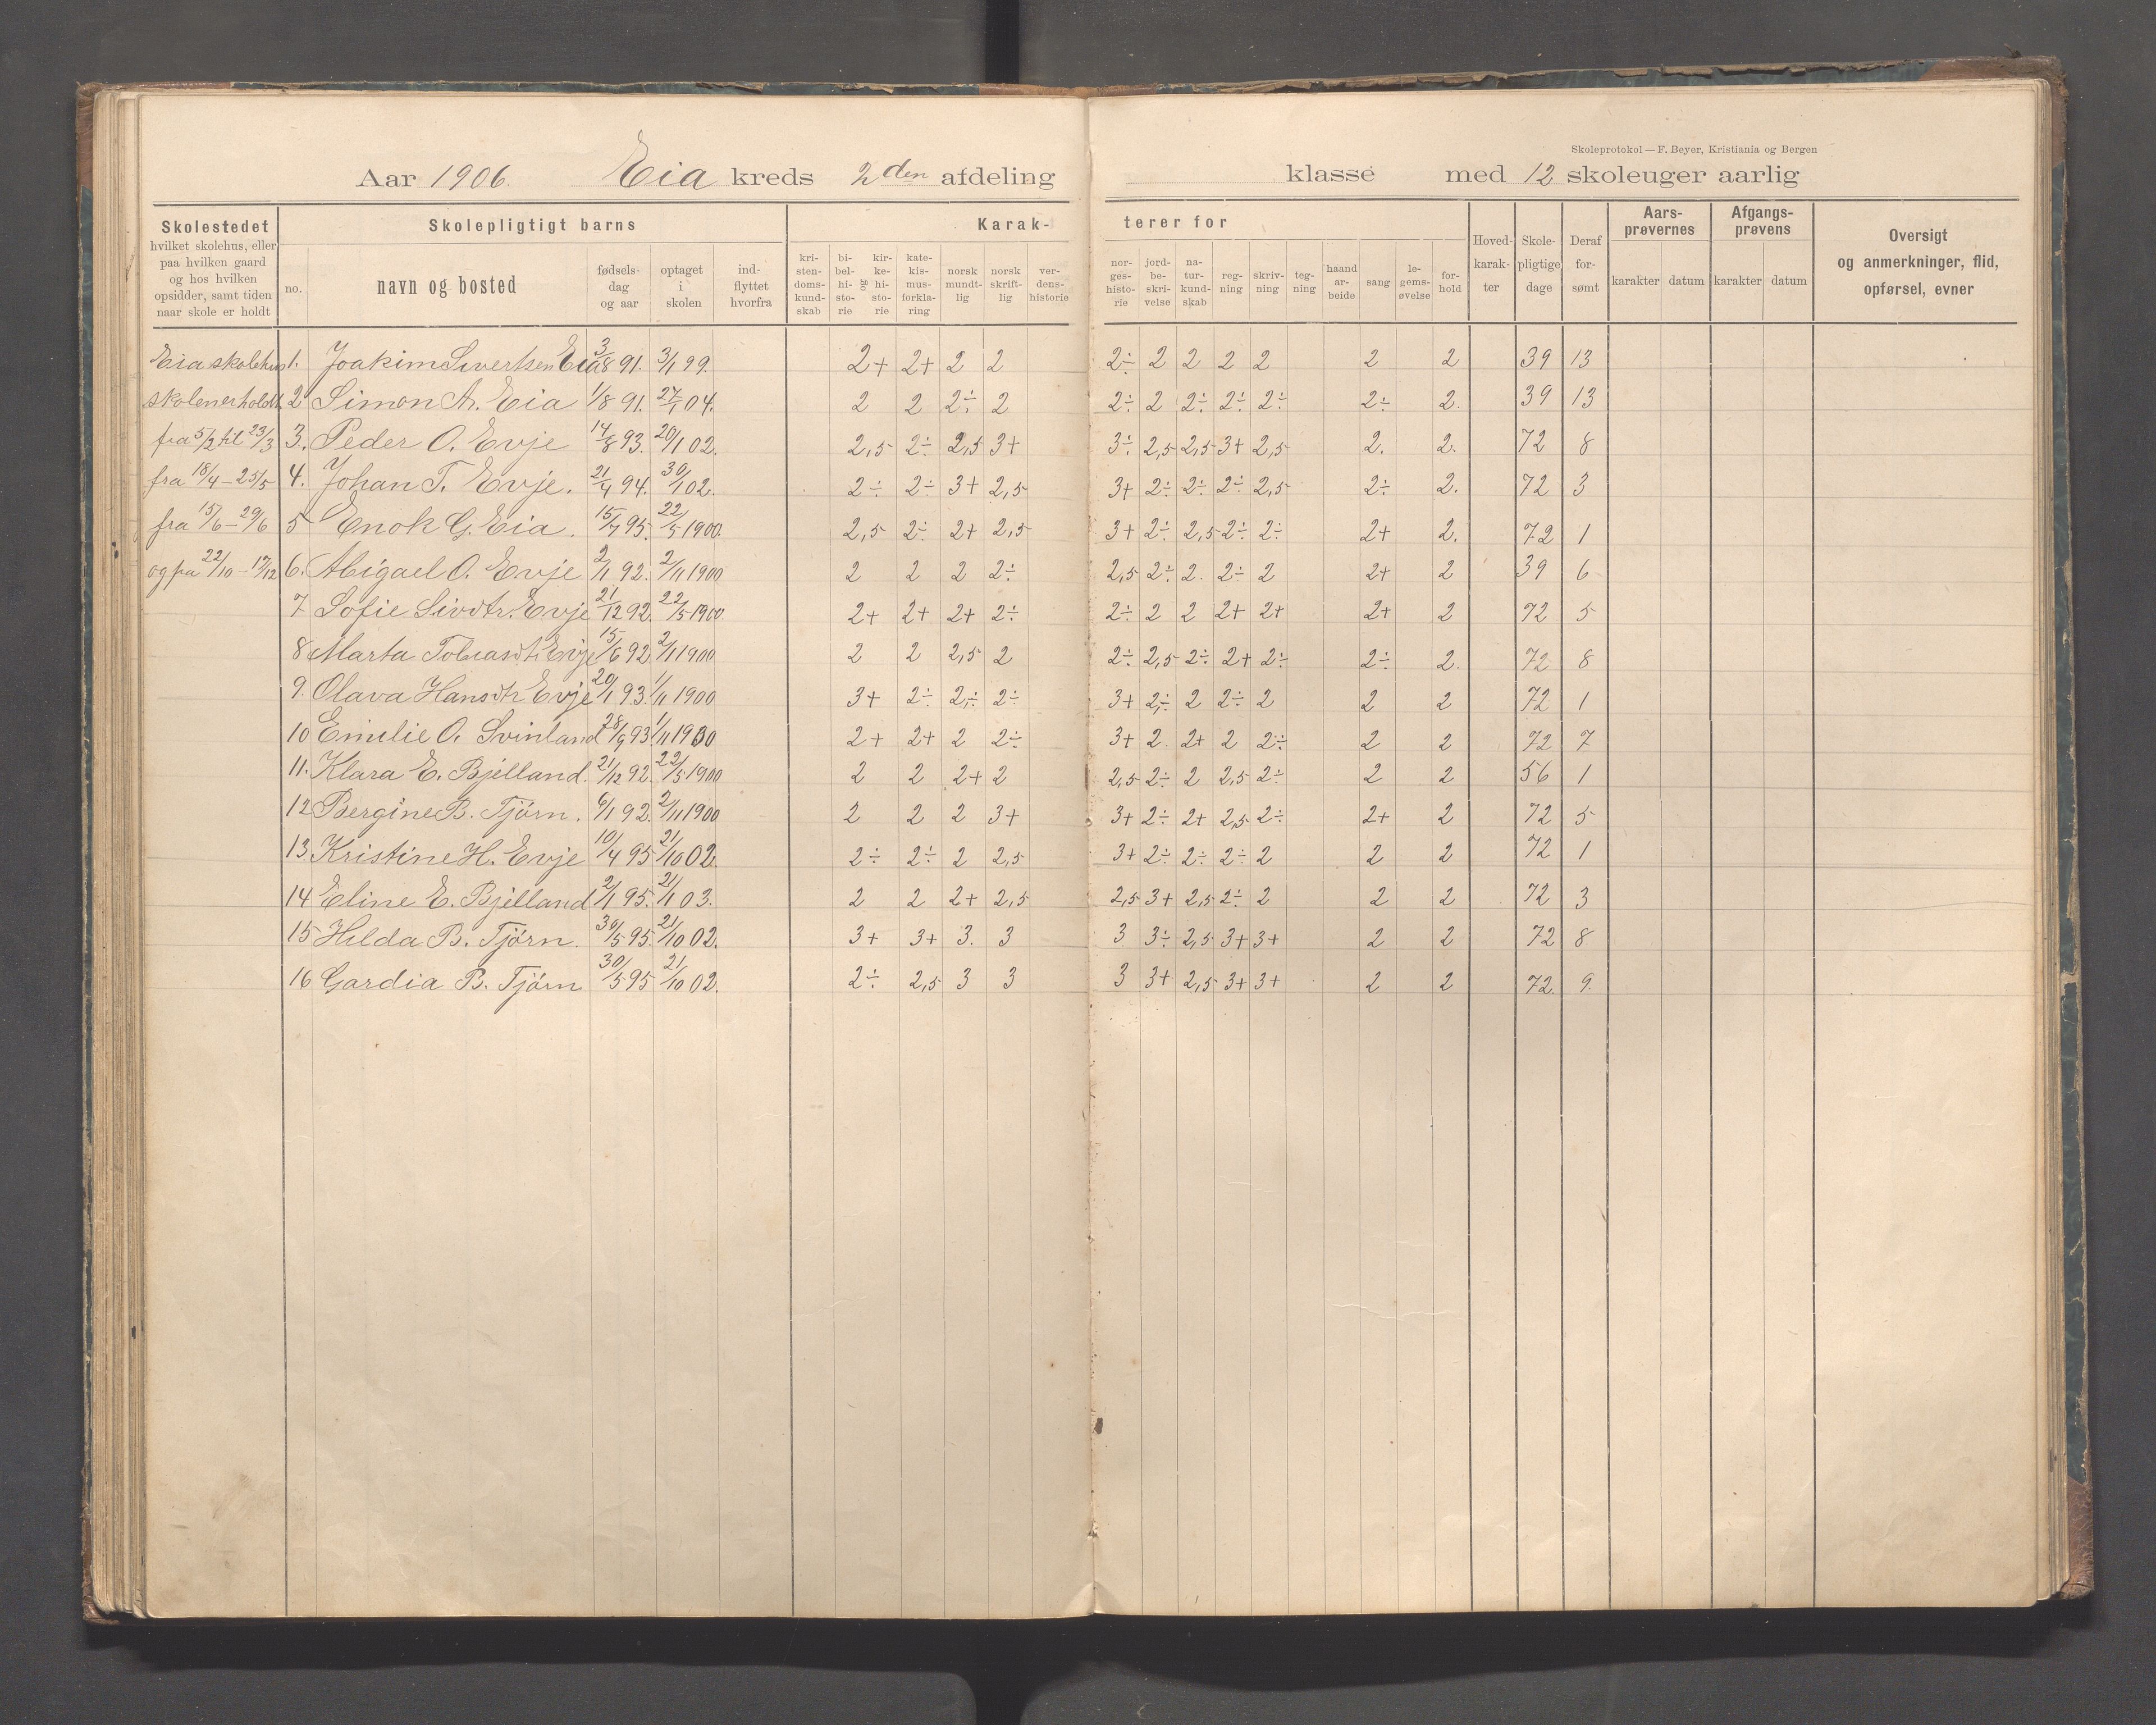 Skoleprotokol — F. Beyer, Kristiania og Bergen
Aar 1906. Eia kreds 2den afdeling klasse med 12 skoleuger aarlig
Skolestedet hvilket skolehus, eller paa hvilken gaard og hos hvilken opsidder, samt tiden naar skole er holdt
Skolepligtigt barns
no. navn og bosted fødsels-dag og aar optaget i skolen ind-flyttet hvorfra
Karak-terer for
kri-sten-doms-kund-skab bi-bel-hi-sto-rie og kir-ke-hi-sto-rie kate-kis-mus-forkla-ring norsk mundt-lig norsk skrift-lig ver-dens-historie
nor-ges-histo-rie jord-be-skri-velse na-tur-kund-skab reg-ning skriv-ning teg-ning haand ar-beide sang le-gems-øvelse for-hold
Hoved-karak-ter Skole-pligtige dage Deraf for-sømt
Aars-prøvernes karakter datum Afgangs-prøvens karakter datum
Oversigt og anmerkninger, flid, opførsel, evner
Eia skolehus 1. Joakim Sivertsen Eia 3/8 91. 3/1 99. 2+ 2+ 2 2 2÷ 2 2 2 2 2 2 39 13
skolen er holdt 2 Simon A. Eia 1/8 91. 27/1 04. 2 2 2÷ 2 2÷ 2 2÷ 2÷ 2÷ 2÷ 2. 39 13
fra 5/2 til 23/3 3. Peder O. Evje 14/8 93. 20/1 02. 2,5 2÷ 2,5 3+ 3÷ 2,5 2,5 3+ 2,5 2. 2. 72 8
fra 18/4 - 25/5 4. Johan T. Evje. 21/4 94. 30/1 02. 2÷ 2÷ 3+ 2,5 3+ 2÷ 2÷ 2÷ 2,5 2÷ 2. 72 3
fra 15/6 - 29/6 5 Enok G. Eia. 15/7 95. 22/5 1900. 2,5 2÷ 2+ 2,5 3+ 2÷ 2,5 2÷ 2÷ 2+ 2. 72 1
og fra 22/10 - 17/12 6. Abigael O. Evje 2/1 92. 2/11 1900 2 2 2 2÷ 2,5 2÷ 2. 2÷ 2 2+ 2 39 6
7 Sofie Sivdtr. Evje 21/12 92. 22/5 1900. 2+ 2+ 2+ 2÷ 2÷ 2 2 2+ 2+ 2+ 2 72 5
8 Marta Tobiasdt. Evje 15/6 92 2/11 1900 2 2 2,5 2 2÷ 2,5 2÷ 2+ 2÷ 2÷ 2. 72 8
9. Olava Hansdtr Evje 20/1 93. 1/11 1900 3+ 2÷ 2÷ 2÷ 3+ 2÷ 2 2÷ 2 2 2 72 1
10 Emilie O. Svinland 28/9 93. 1/11 1900 2+ 2+ 2 2÷ 3+ 2. 2+ 2 2÷ 2 2 72 7
11. Klara E. Bjelland. 21/12 92. 22/5 1900 2 2 2+ 2 2,5 2÷ 2 2,5 2÷ 2 2 56 1
12 Bergine B. Tjörn. 6/1 92. 2/11 1900 2 2 2 3+ 3+ 2÷ 2+ 2,5 2÷ 2+ 2 72 5
13. Kristine H. Evje 10/4 95 21/10 02. 2÷ 2÷ 2 2,5 3+ 2÷ 2÷ 2÷ 2 2 2 72 1
14 Eline E. Bjelland 2/1 95. 21/1 03. 2 2 2+ 2,5 2,5 3+ 2,5 2÷ 2 2 2 72 3
15 Hilda B. Tjörn. 30/5 95. 21/10 02. 3+ 3+ 3. 3 3 3÷ 2,5 3+ 3+ 2 2 72 8
16 Gardia B. Tjörn 30/5 95 21/10 02. 2÷ 2,5 3 3 3 3+ 2,5 3+ 3+ 2 2 72. 9.